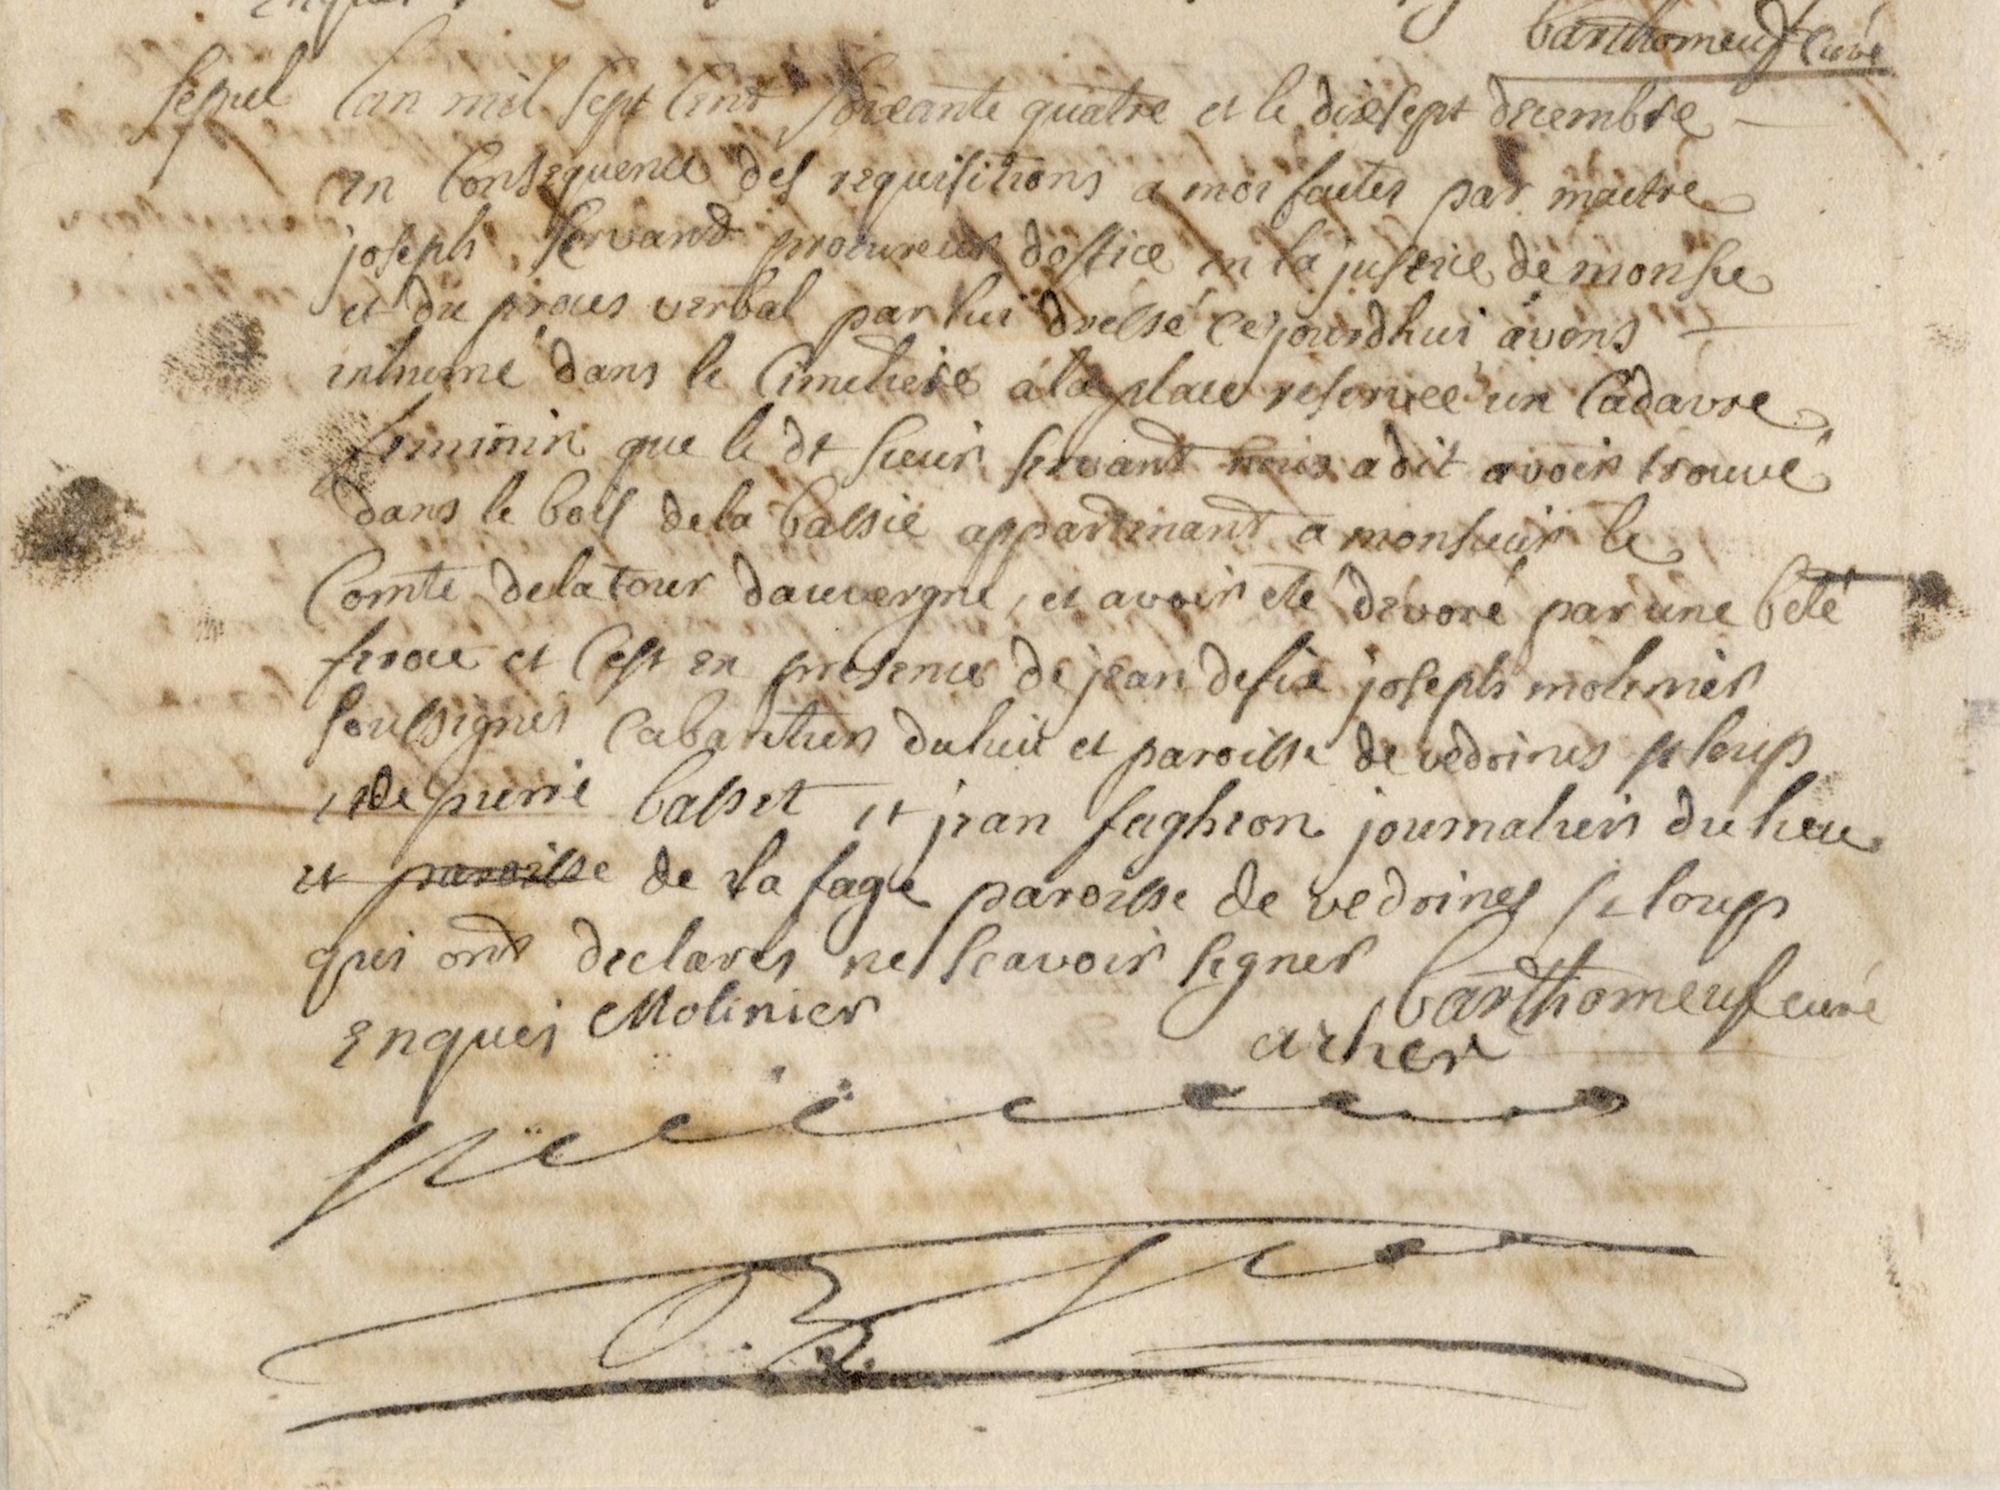 barthomeuf curé
sepul lan mil sept cent soixante quatre et le dixsept decembre
en consequence des requisitions a moi faites par maitre
joseph servand procureur doffice en la justice de
et du proces verbal par lui dressé cejourdhui avons
inhumé dans le cimetiere a la place reservée un cadavre
feminin que le dt sieur servant nous a dit avoir trouvé
dans le bois de la bessie appartenant a monsieur le
comte de la tour dauvergne, et avoir eté devoré par une beté
feroce et cest en presence de jean joseph molinier
soussignés cabaretiers du lieu et paroisse de vedrines st loup
et de pierre basset et jean fagheon journaliers du lieu
et paroisse de la fage paroisse de vedrines st loup
qui ont declarés ne scavoir signer barthomeuf curé
enquis Molinier archer